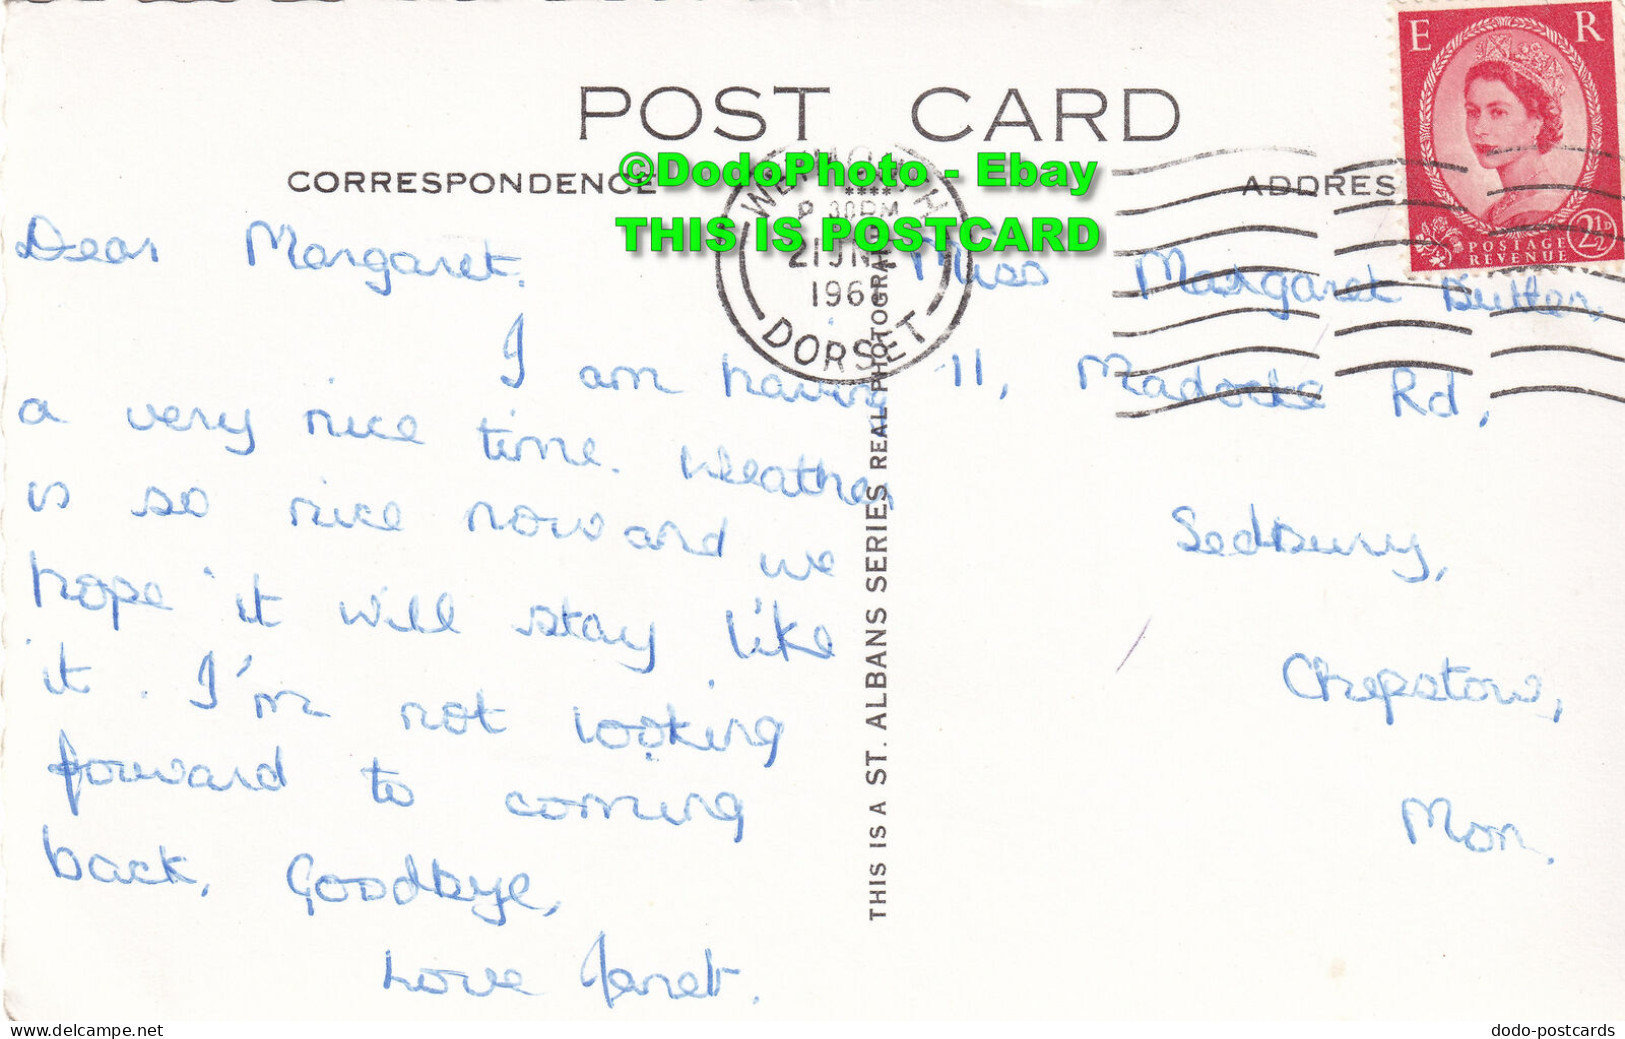 POST CARD
CORRESPONDENCE
ADDRES
©DodoPhoto - Ebay
THIS IS POSTCARD
E R
POSTAGE
REVENUE
2½D
WEYMOUTH
30PM
21 JNE
196
DORSET
Dear Margaret.
I am having
a very nice time. Weather
is so nice now and we
hope it will stay like
it. I'm not looking
forward to coming
back. Goodbye,
Love Janet.
THIS IS A ST. ALBANS SERIES REAL PHOTOGRAPH
Miss Margaret Butter,
11, Madocke Rd,
Sedbury,
Chepstow,
Mon.
Delcampe.net
dodo-postcards